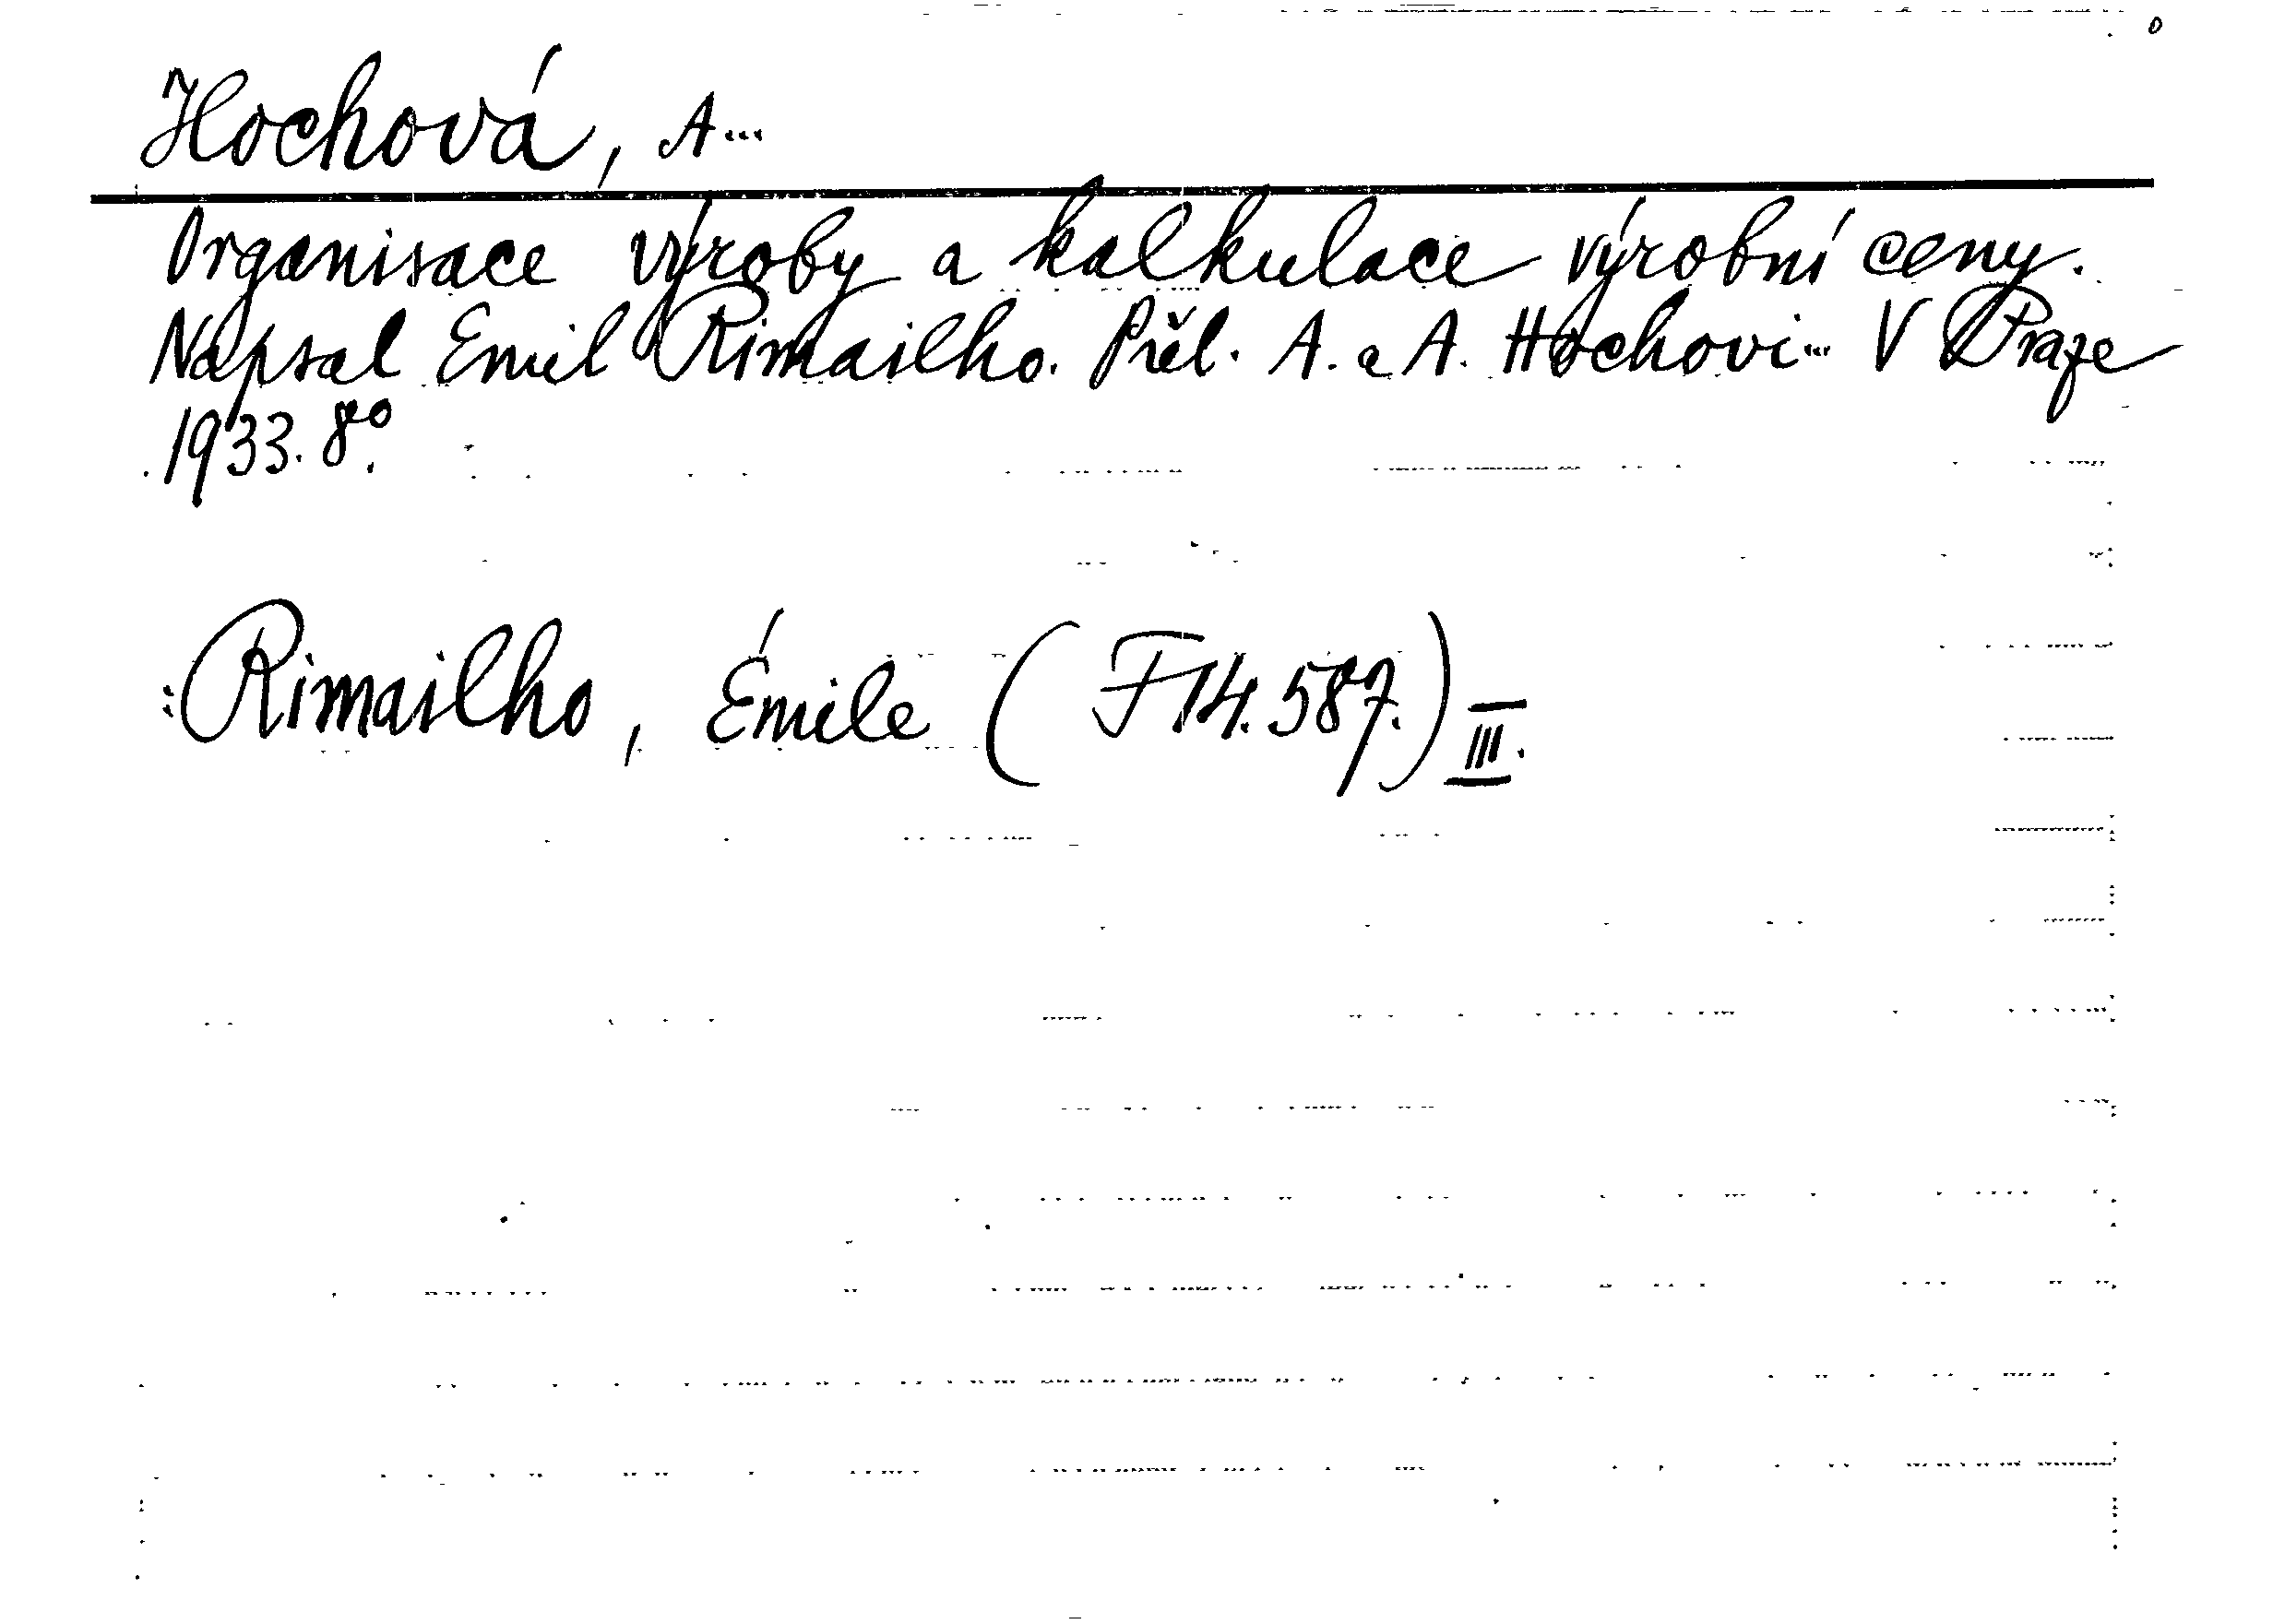 Hochová, A...
Organisace výroby a kalkulace výrobní ceny.
Napsal Emil Rimailho. Přel. A. a A. Hochovi... V Praze
1933. 8°.
:Rimailho, Émile (F 14.587.) III.